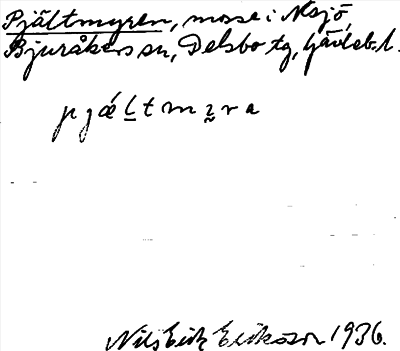 Pjältmyren, mosse i Nsjö,
Bjuråkers sn, Delsbo tg, Gävleb. l.
pjǽḻtmz̰ra
Nils Erik Erikson 1936.